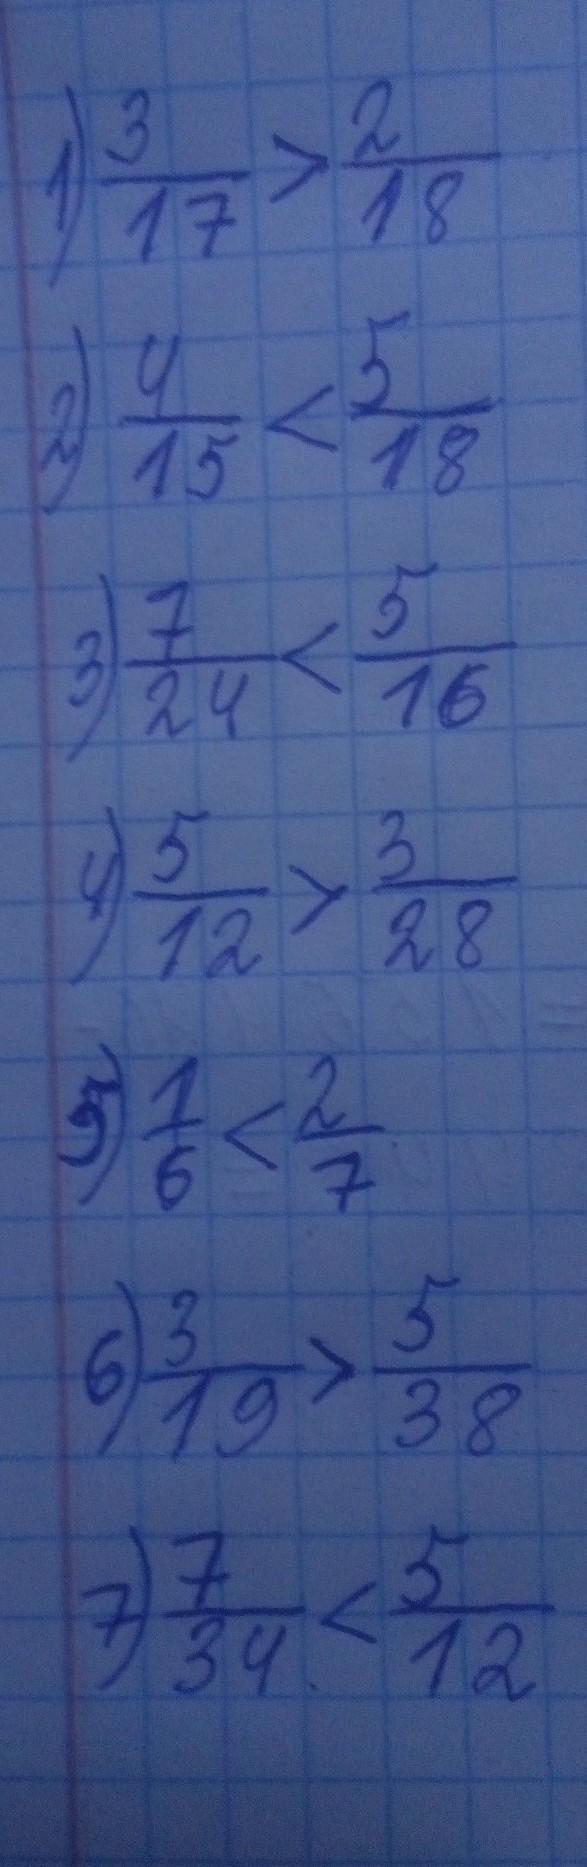 1) 3/17 > 2/18
2) 4/15 < 5/18
3) 7/24 < 5/16
4) 5/12 > 3/28
5) 1/6 < 2/7
6) 3/19 > 5/38
7) 7/34 < 5/12